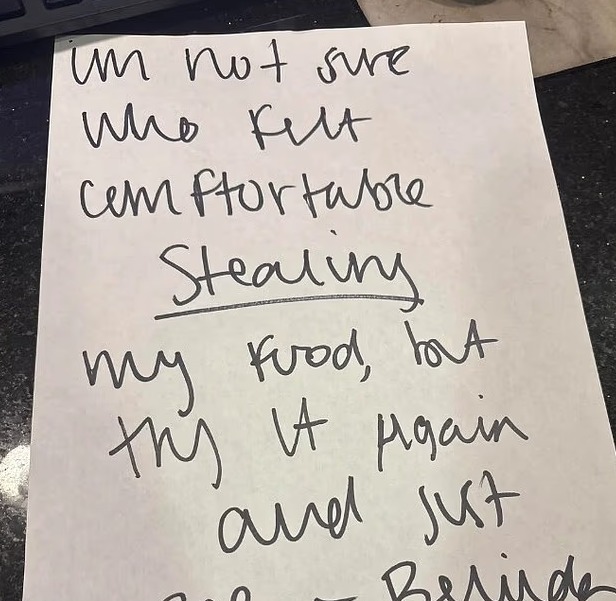 im not sure
who felt
comftortable
Stealing
my food, but
try it again
and just
- Belinda